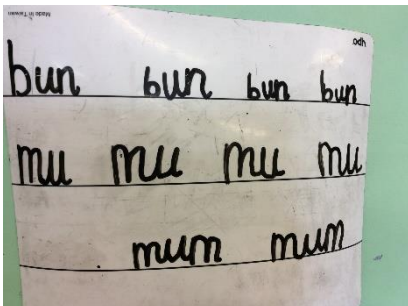 Made in Taiwan
bun bun bun bun
mu mu mu mu
mum mum